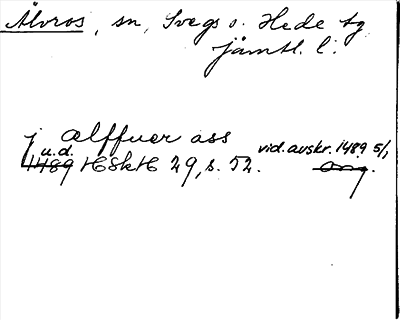 Älvros, sn, Svegs o. Hede tg
Jämtl. l.
j ælffuer ass
u.d. vid. avskr. 1489 5/1
1489 HSkH 29, s. 52. orig.